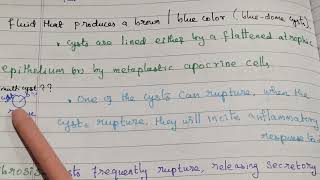 fluid that produces a brown / blue color (blue-dome cysts).
• cysts are lined either by a flattened atrophic
epithelium or by metaplastic apocrine cells.
multi cyst ??
cyst
• One of the cysts can rupture, when the
cysts rupture, they will incite inflammatory
response to
cysts frequently rupture, releasing secretory